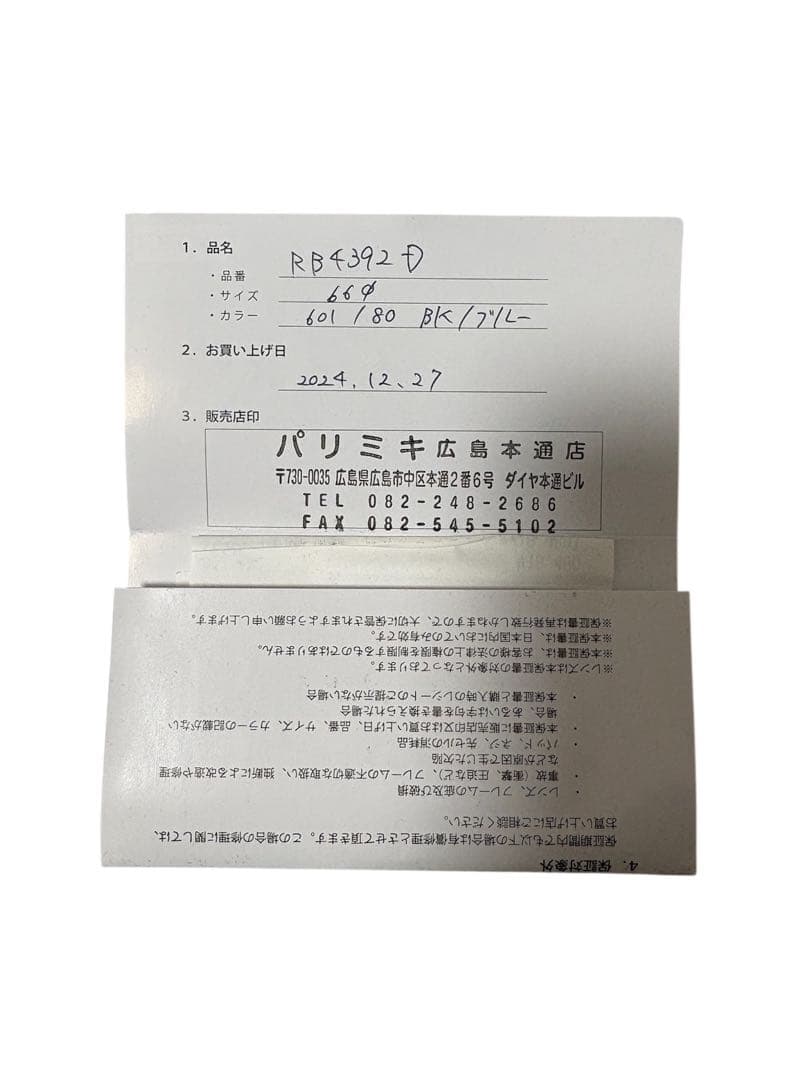 1. 品名
・品番 RB4392D
・サイズ 66∅
・カラー 601/80 BK/ブルー
2. お買い上げ日
2024.12.27
3. 販売店印
パリミキ広島本通店
〒730-0035 広島県広島市中区本通2番6号 ダイヤ本通ビル
TEL 082-248-2686
FAX 082-545-5102
4. 保証対象外
保証期間内でも以下の場合は有償修理とさせて頂きます。この場合の修理に関しては、
お買い上げ店にご相談ください。
・ レンズ、フレームの疵及び破損
・ 事故（衝撃、圧迫など）、フレームの不適切な取扱い、独断による改造や修理
などが原因で生じた欠陥
・ パッド、ネジ、先セルの消耗品
・ 本保証書に販売店印又はお買い上げ日、品番、サイズ、カラーの記載がない
場合、あるいは字句を書き換えられた場合
・ 本保証書と購入時のレシートのご提示がない場合
※レンズは本保証書の対象外となっております。
※本保証は、お客様の法律上の権限を制限するものではありません。
※本保証書は、日本国内においてのみ有効です。
※保証書は再発行致しかねますので、大切に保管されますようお願い申し上げます。